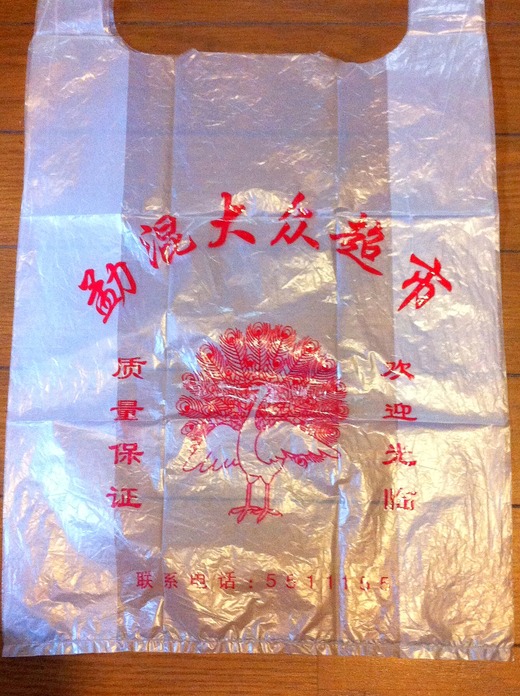 勐混大众超市
质量保证
欢迎光临
联系电话:5511195